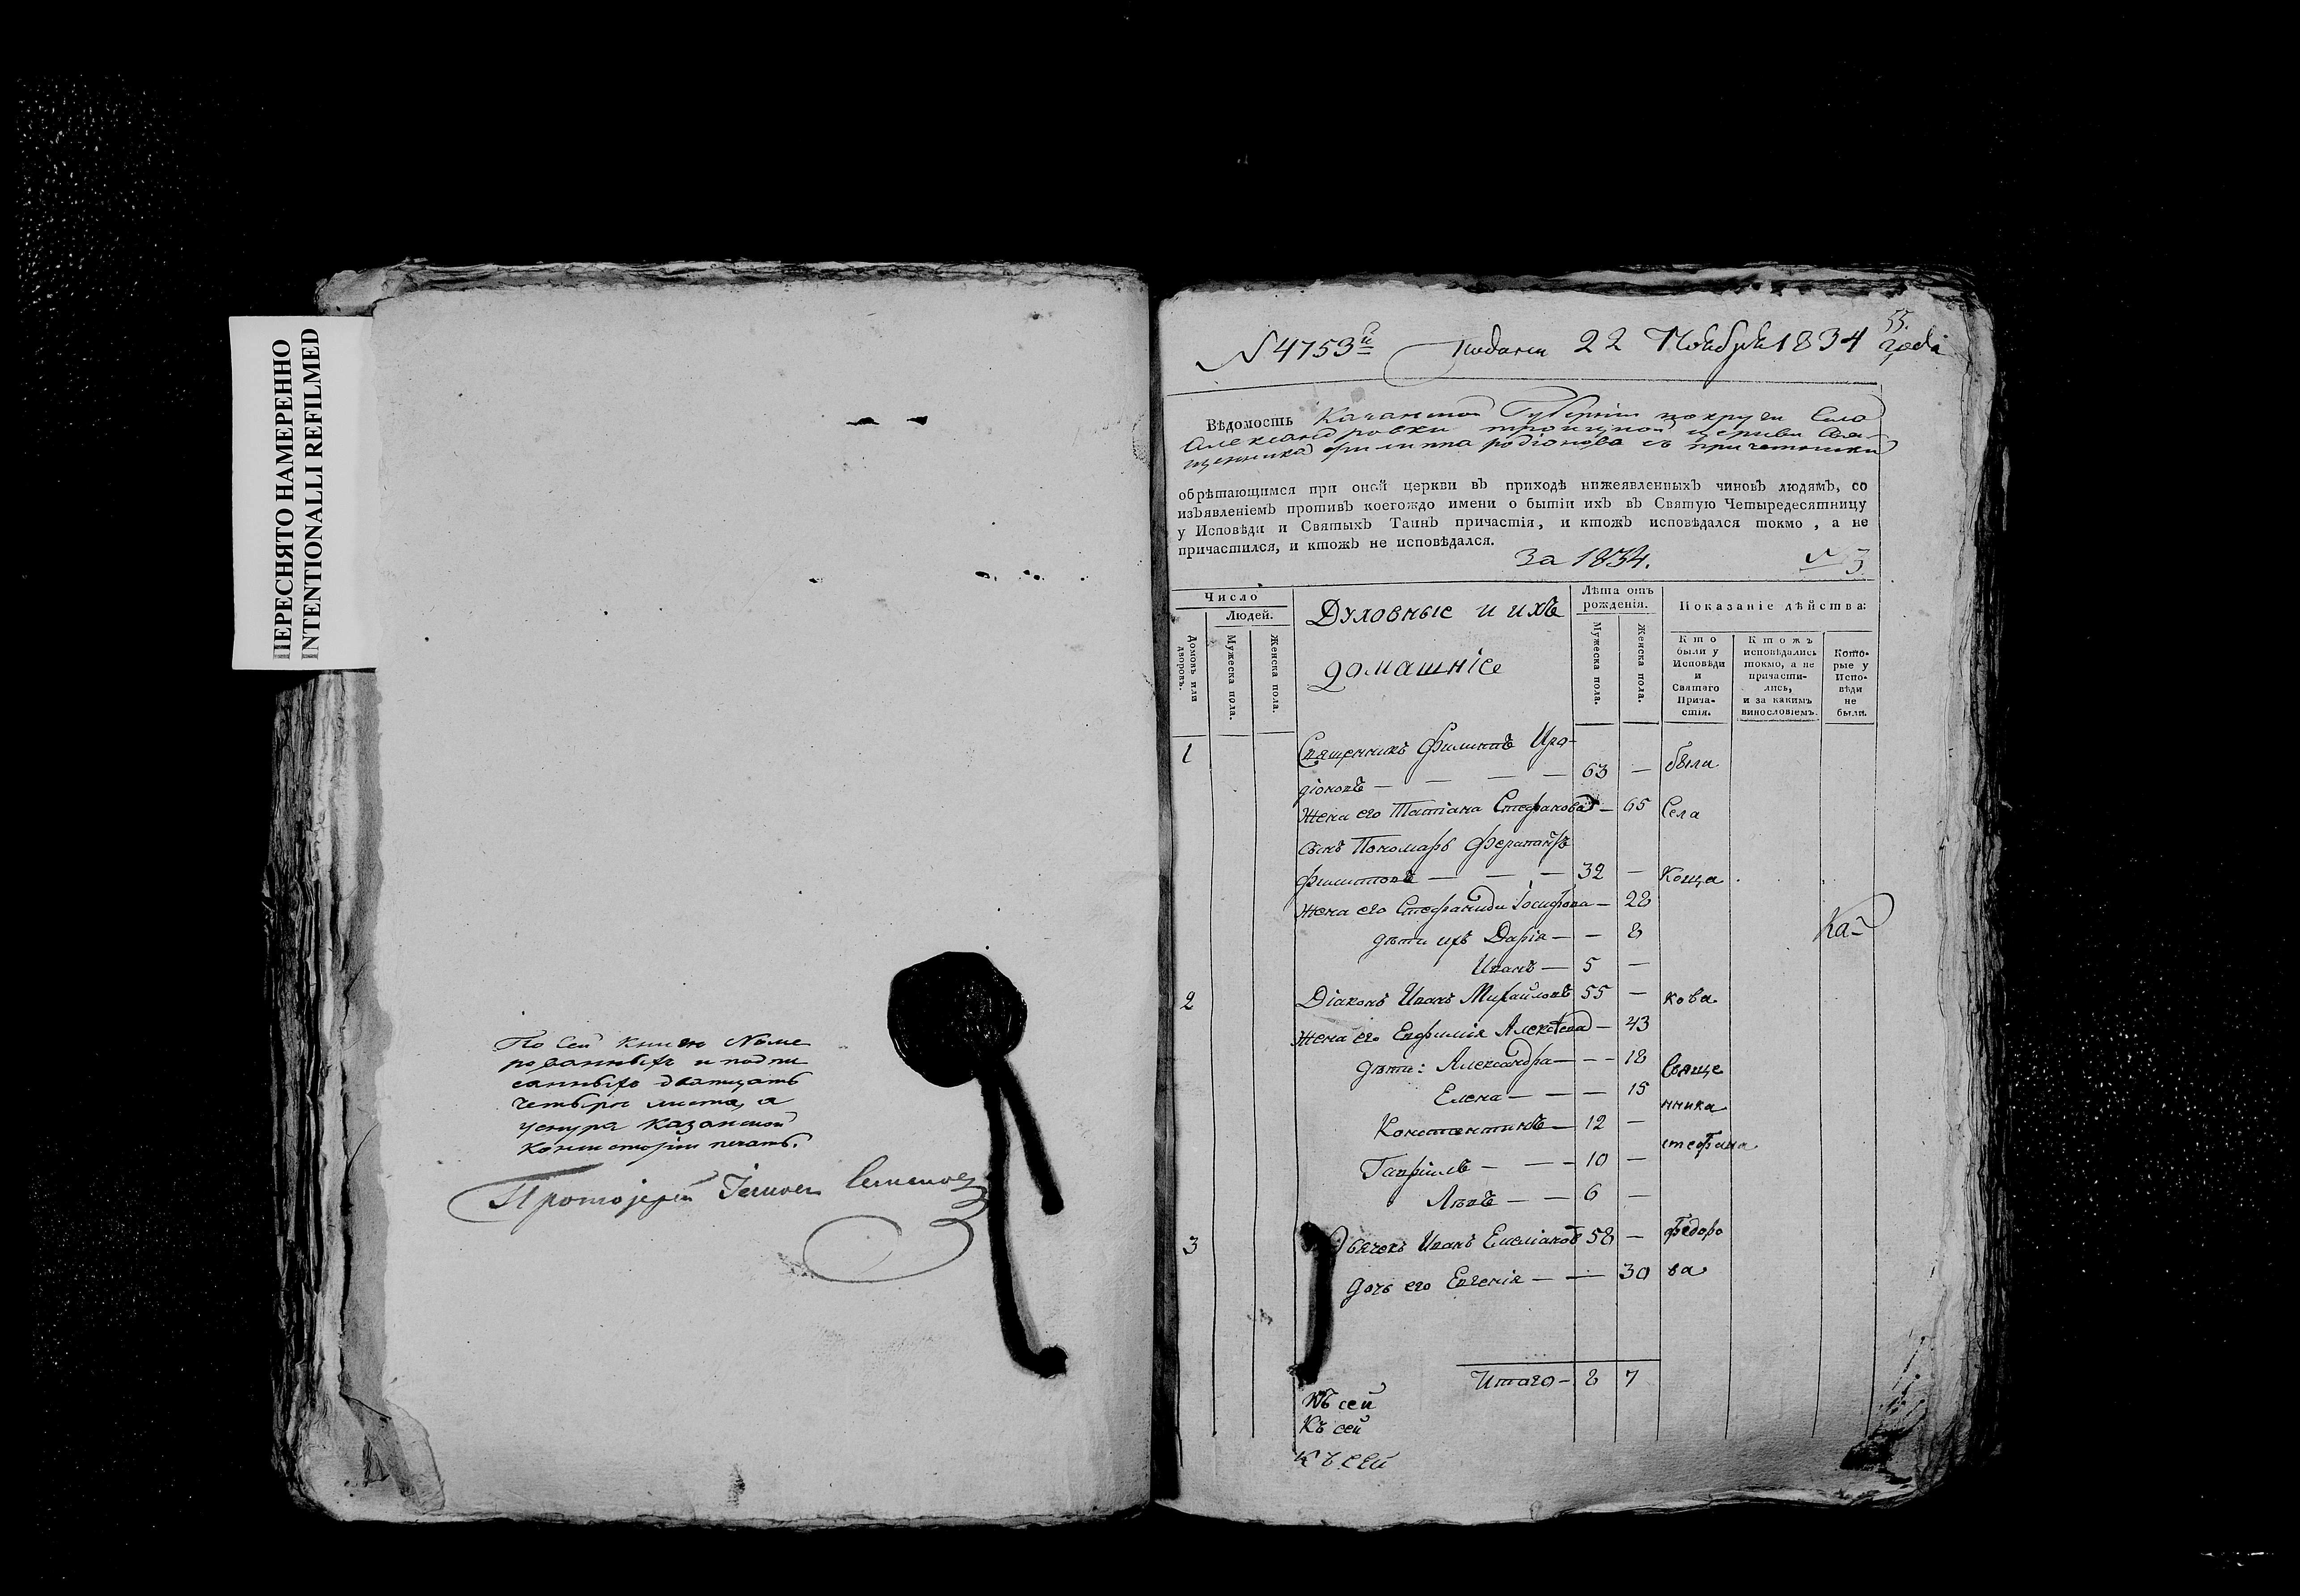 ПЕРЕСНЯТО НАМЕРЕННО
INTENTIONALLI REFILMED
По сей книге Номе
рованныхъ и подпи
санныхъ дватцать
четыре листа, а
Казанской
Консисторіи печать.
Протоіерей Семеновъ
55.
№ 4753й Подани 22 Ноября 1834 года
Вѣдомость Казанской Губерніи округи Села
Александровки троицкой церкви Свя-
щенника филиппа родіонова съ причетники
обрѣтающимся при оной церкви въ приходѣ нижеявленныхъ чиновъ людямъ, со
изъявленіемъ противъ коегождо имени о бытіи ихъ въ Святую Четыредесятницу
у Исповѣди и Святыхъ Таинъ причастія, и ктожъ исповѣдался токмо, а не
причастился, и ктожъ не исповѣдался.
За 1834. № 3.
Число
Людей.
Домовъ или дворовъ.
Мужеска пола.
Женска пола.
Духовные и ихъ
домашніе
Лѣта отъ рожденія.
Мужеска пола.
Женска пола.
Показаніе дѣйства:
Кто были у Исповѣди и Святаго Прича-стія.
Ктожъ исповѣдались токмо, а не причасти-лись, и за какимъ винословіемъ.
Кото-рые у Испо-вѣди не были.
1 Священникъ Филиппъ Иро-
діоновъ — — — — 63 — были
Жена его Татіана Стефанова — 65 Села
сынъ Пономарь
Филипповъ — — — 32 — Коща
Жена его Стефанида Іосифова — 28
дѣти ихъ Дарія — — 8 Ка-
Иванъ — 5 —
2 Діаконъ Иванъ Михайловъ 55 — кова
Жена его Евфимія Алексѣева — 43
дѣти: Александра — — — 18 Свяще
Елена — — — 15 нника
Константинъ — 12 —
Гавріилъ — — — 10 — стефана
Левъ — — 6 —
3 Дьячекъ Иванъ Емеліановъ 58 — федоро
дочь его Евгенія — — 30 ва
Итого — 8 7
Къ сей
Къ сей
Къ сей